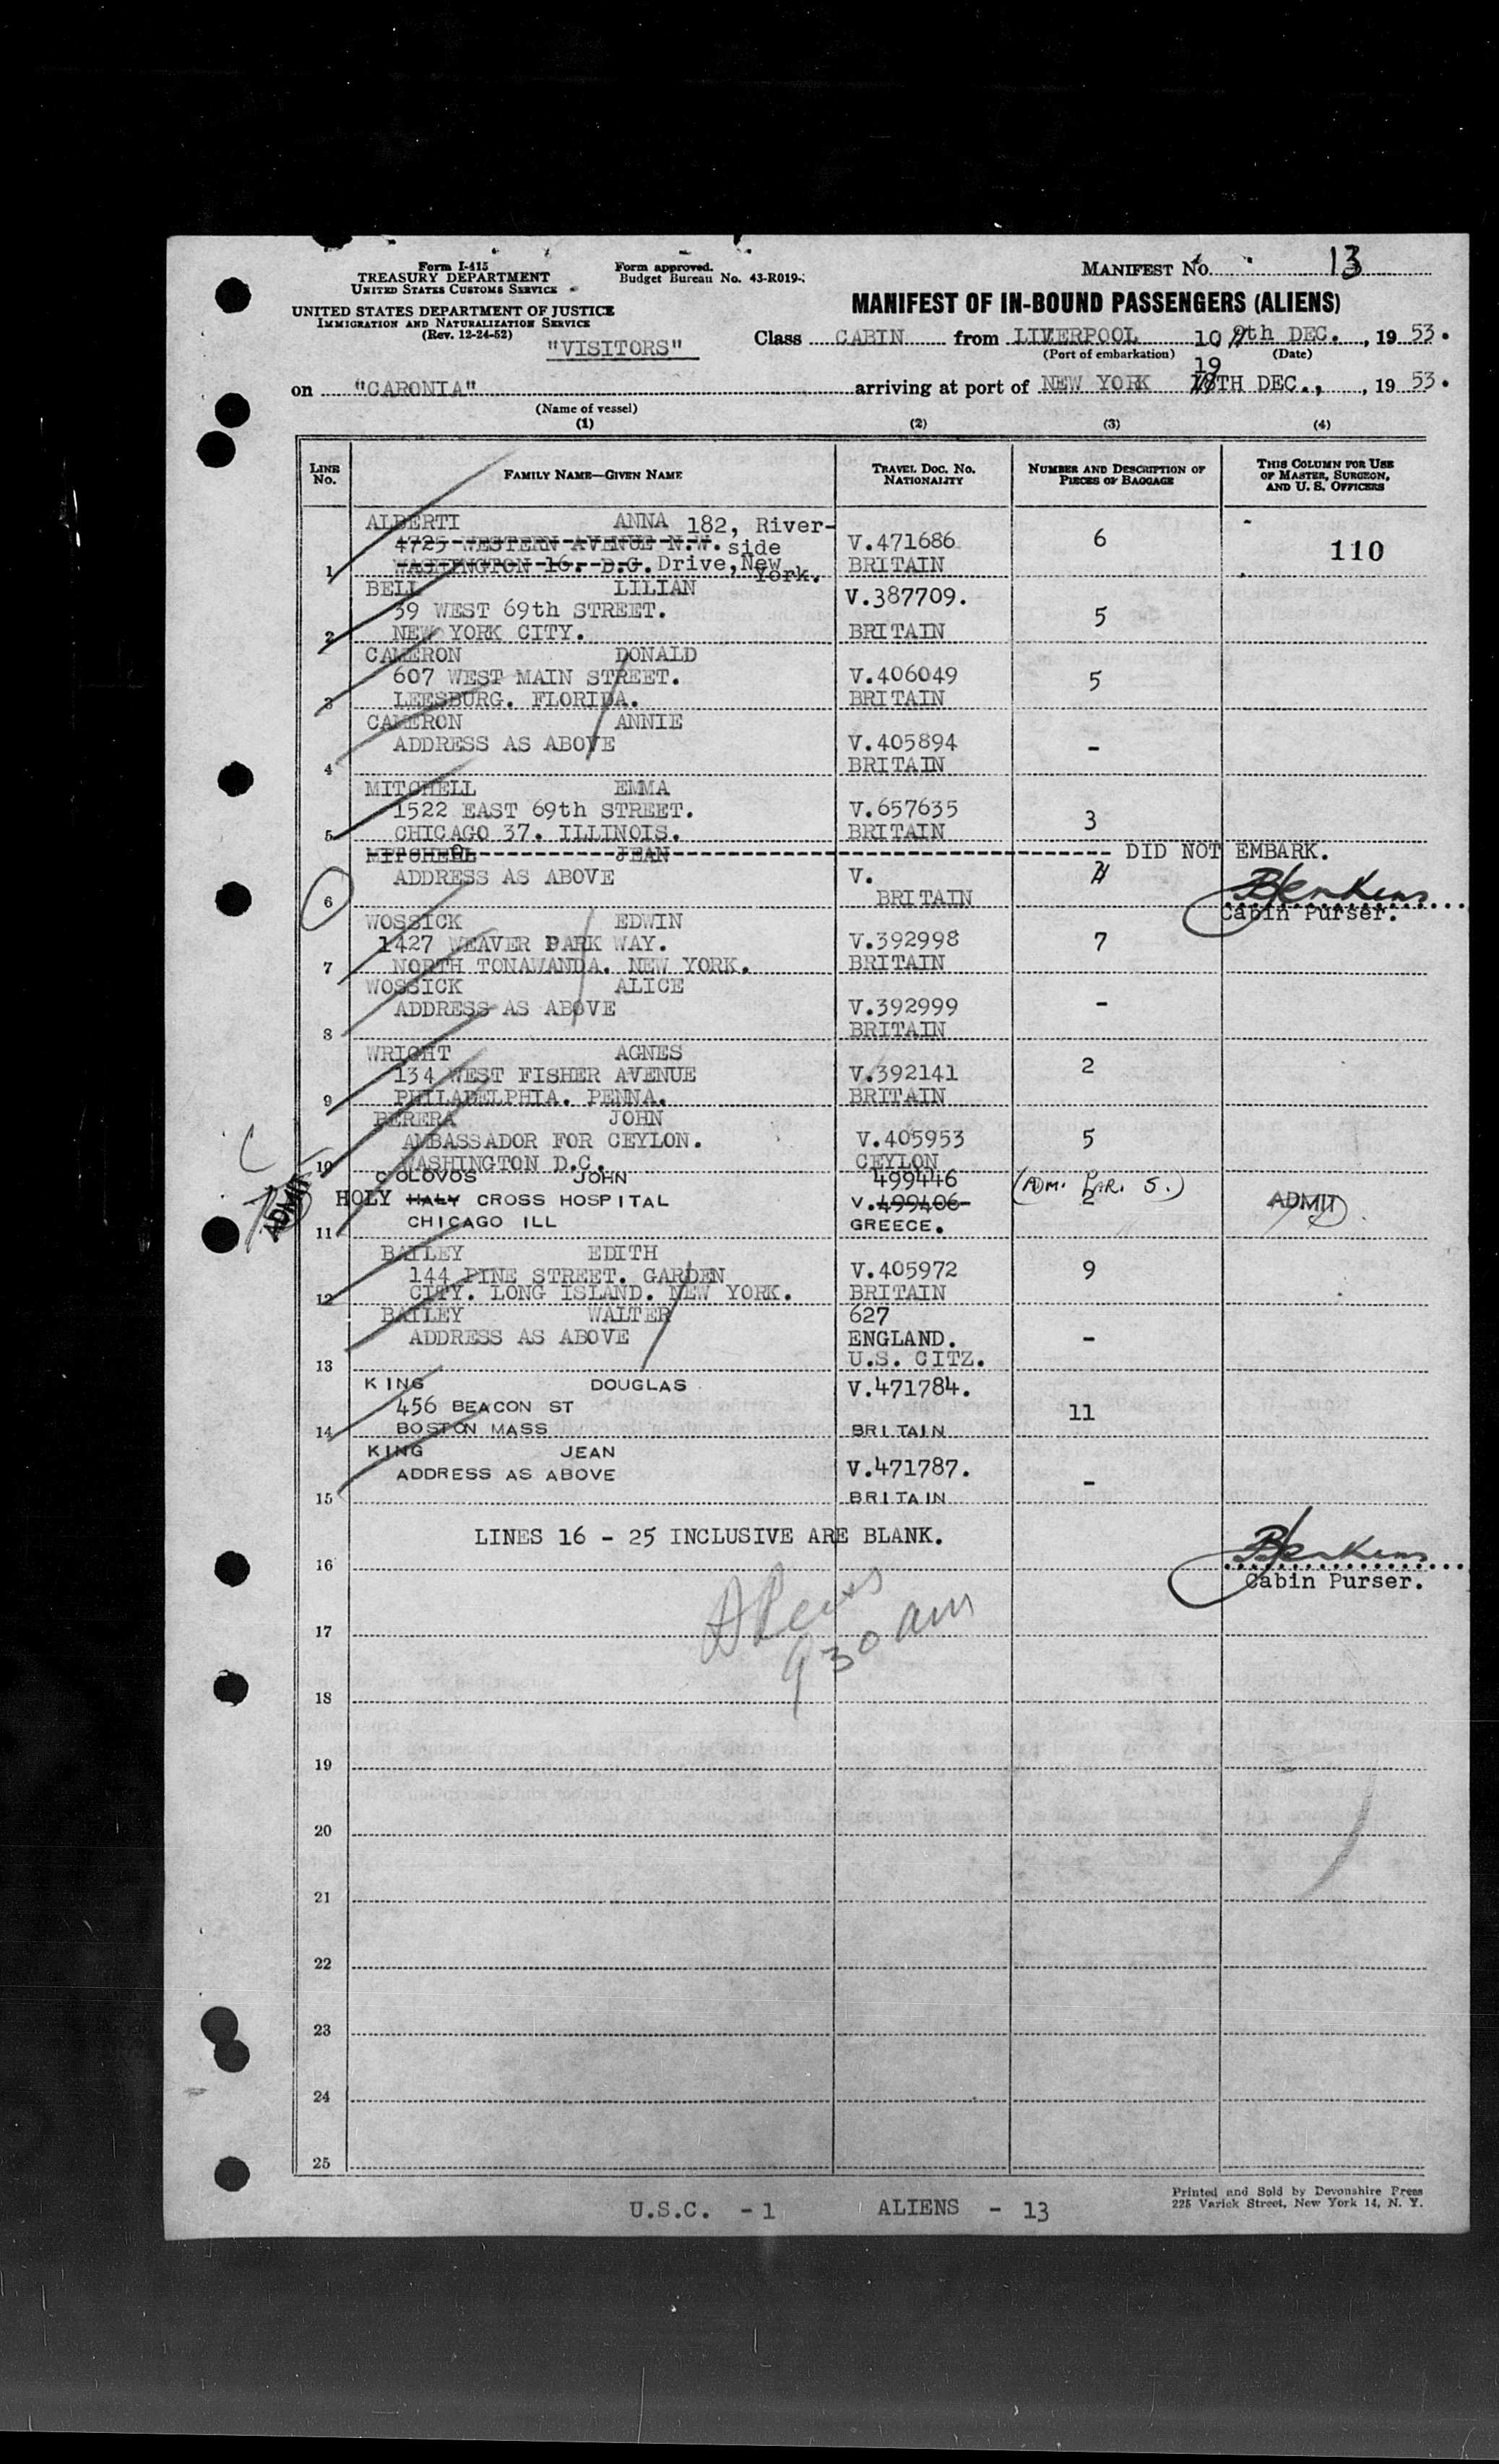 Form I-415
TREASURY DEPARTMENT
UNITED STATES CUSTOMS SERVICE
UNITED STATES DEPARTMENT OF JUSTICE
IMMIGRATION AND NATURALIZATION SERVICE
(Rev. 12-24-52)
"VISITORS"
Form approved.
Budget Bureau No. 43-R019-
MANIFEST No. 13
MANIFEST OF IN-BOUND PASSENGERS (ALIENS)
Class CABIN from LIVERPOOL 10 9th DEC. , 19 53.
(Port of embarkation) (Date)
19
on "CARONIA" arriving at port of NEW YORK 18TH DEC., , 19 53.
(Name of vessel)
(1) (2) (3) (4)
LINE No. FAMILY NAME—GIVEN NAME TRAVEL DOC. NO. NATIONALITY NUMBER AND DESCRIPTION OF PIECES OF BAGGAGE THIS COLUMN FOR USE OF MASTER, SURGEON, AND U. S. OFFICERS
ALBERTI ANNA 182, River-
4725 WESTERN AVENUE N.W. side V.471686 6 110
1 WASHINGTON 16. D.C. Drive, New York. BRITAIN
BELL LILIAN V.387709.
39 WEST 69th STREET. 5
2 NEW YORK CITY. BRITAIN
CAMERON DONALD
607 WEST MAIN STREET. V.406049 5
3 LEESBURG. FLORIDA. BRITAIN
CAMERON ANNIE
ADDRESS AS ABOVE V.405894 -
4 BRITAIN
MITCHELL EMMA
1522 EAST 69th STREET. V.657635 3
5 CHICAGO 37. ILLINOIS. BRITAIN
MITCHELL JEAN DID NOT EMBARK.
ADDRESS AS ABOVE V.
6 BRITAIN
Cabin Purser.
WOSSICK EDWIN
1427 WEAVER PARK WAY. V.392998 7
7 NORTH TONAWANDA. NEW YORK. BRITAIN
WOSSICK ALICE
ADDRESS AS ABOVE V.392999 -
8 BRITAIN
WRIGHT AGNES
134 WEST FISHER AVENUE V.392141 2
9 PHILADELPHIA. PENNA. BRITAIN
PERERA JOHN
AMBASSADOR FOR CEYLON. V.405953 5
10 WASHINGTON D.C. CEYLON
COLOVOS JOHN 499446 (ADM. PAR. 5.)
ADMIT HOLY HALY CROSS HOSPITAL V.499406 2 ADMIT
11 CHICAGO ILL GREECE.
BAILEY EDITH
144 PINE STREET. GARDEN V.405972 9
12 CITY. LONG ISLAND. NEW YORK. BRITAIN
BAILEY WALTER 627
ADDRESS AS ABOVE ENGLAND. -
13 U.S. CITZ.
KING DOUGLAS V.471784.
456 BEACON ST 11
14 BOSTON MASS BRITAIN
KING JEAN
ADDRESS AS ABOVE V.471787. -
15 BRITAIN
LINES 16 - 25 INCLUSIVE ARE BLANK.
16
Cabin Purser.
9 30 am
17
18
19
20
21
22
23
24
25
U.S.C. - 1 ALIENS - 13
Printed and Sold by Devonshire Press
225 Varick Street, New York 14, N. Y.